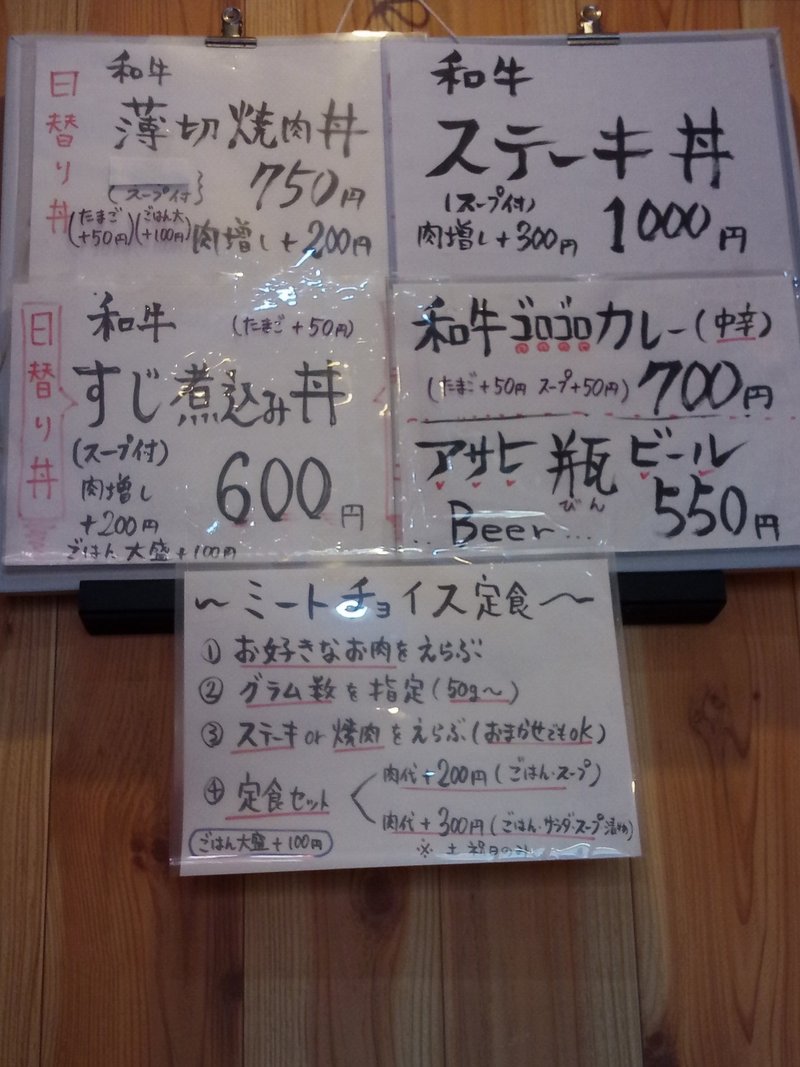 日替り丼
和牛
薄切焼肉丼
(スープ付)
750円
(たまご+50円)(ごはん大+100円)
肉増し+200円
和牛
ステーキ丼
(スープ付)
肉増し+300円
1000円
日替り丼
和牛
(たまご+50円)
すじ煮込み丼
(スープ付)
肉増し
+200円
600円
ごはん大盛+100円
和牛ゴロゴロカレー(中辛)
(たまご+50円 スープ+50円)
700円
アサヒ瓶ビール
びん
Beer...
550円
~ミートチョイス定食~
① お好きなお肉をえらぶ
② グラム数を指定(50g~)
③ ステーキor焼肉をえらぶ(おまかせでもOK)
④ 定食セット
肉代+200円(ごはん・スープ)
肉代+300円(ごはん・サラダ・スープ
ごはん大盛+100円
※ 土